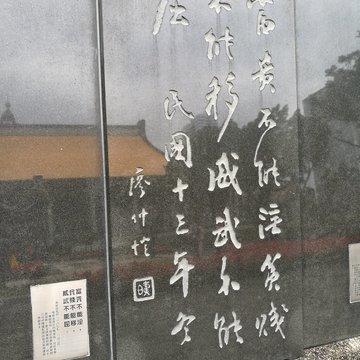 富贵不能淫貧賤
不能移威武不能
屈 民國十三年冬
廖仲愷
富貴不能淫
貧賤不能移
威武不能屈